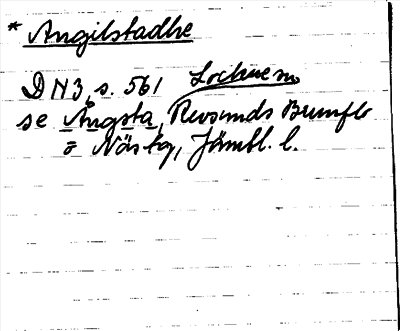 * Angilstadhe
DN3, s. 561 Lockne sn
se Ångsta, Revsunds Brunflo
o Näsky, Jämtl. l.